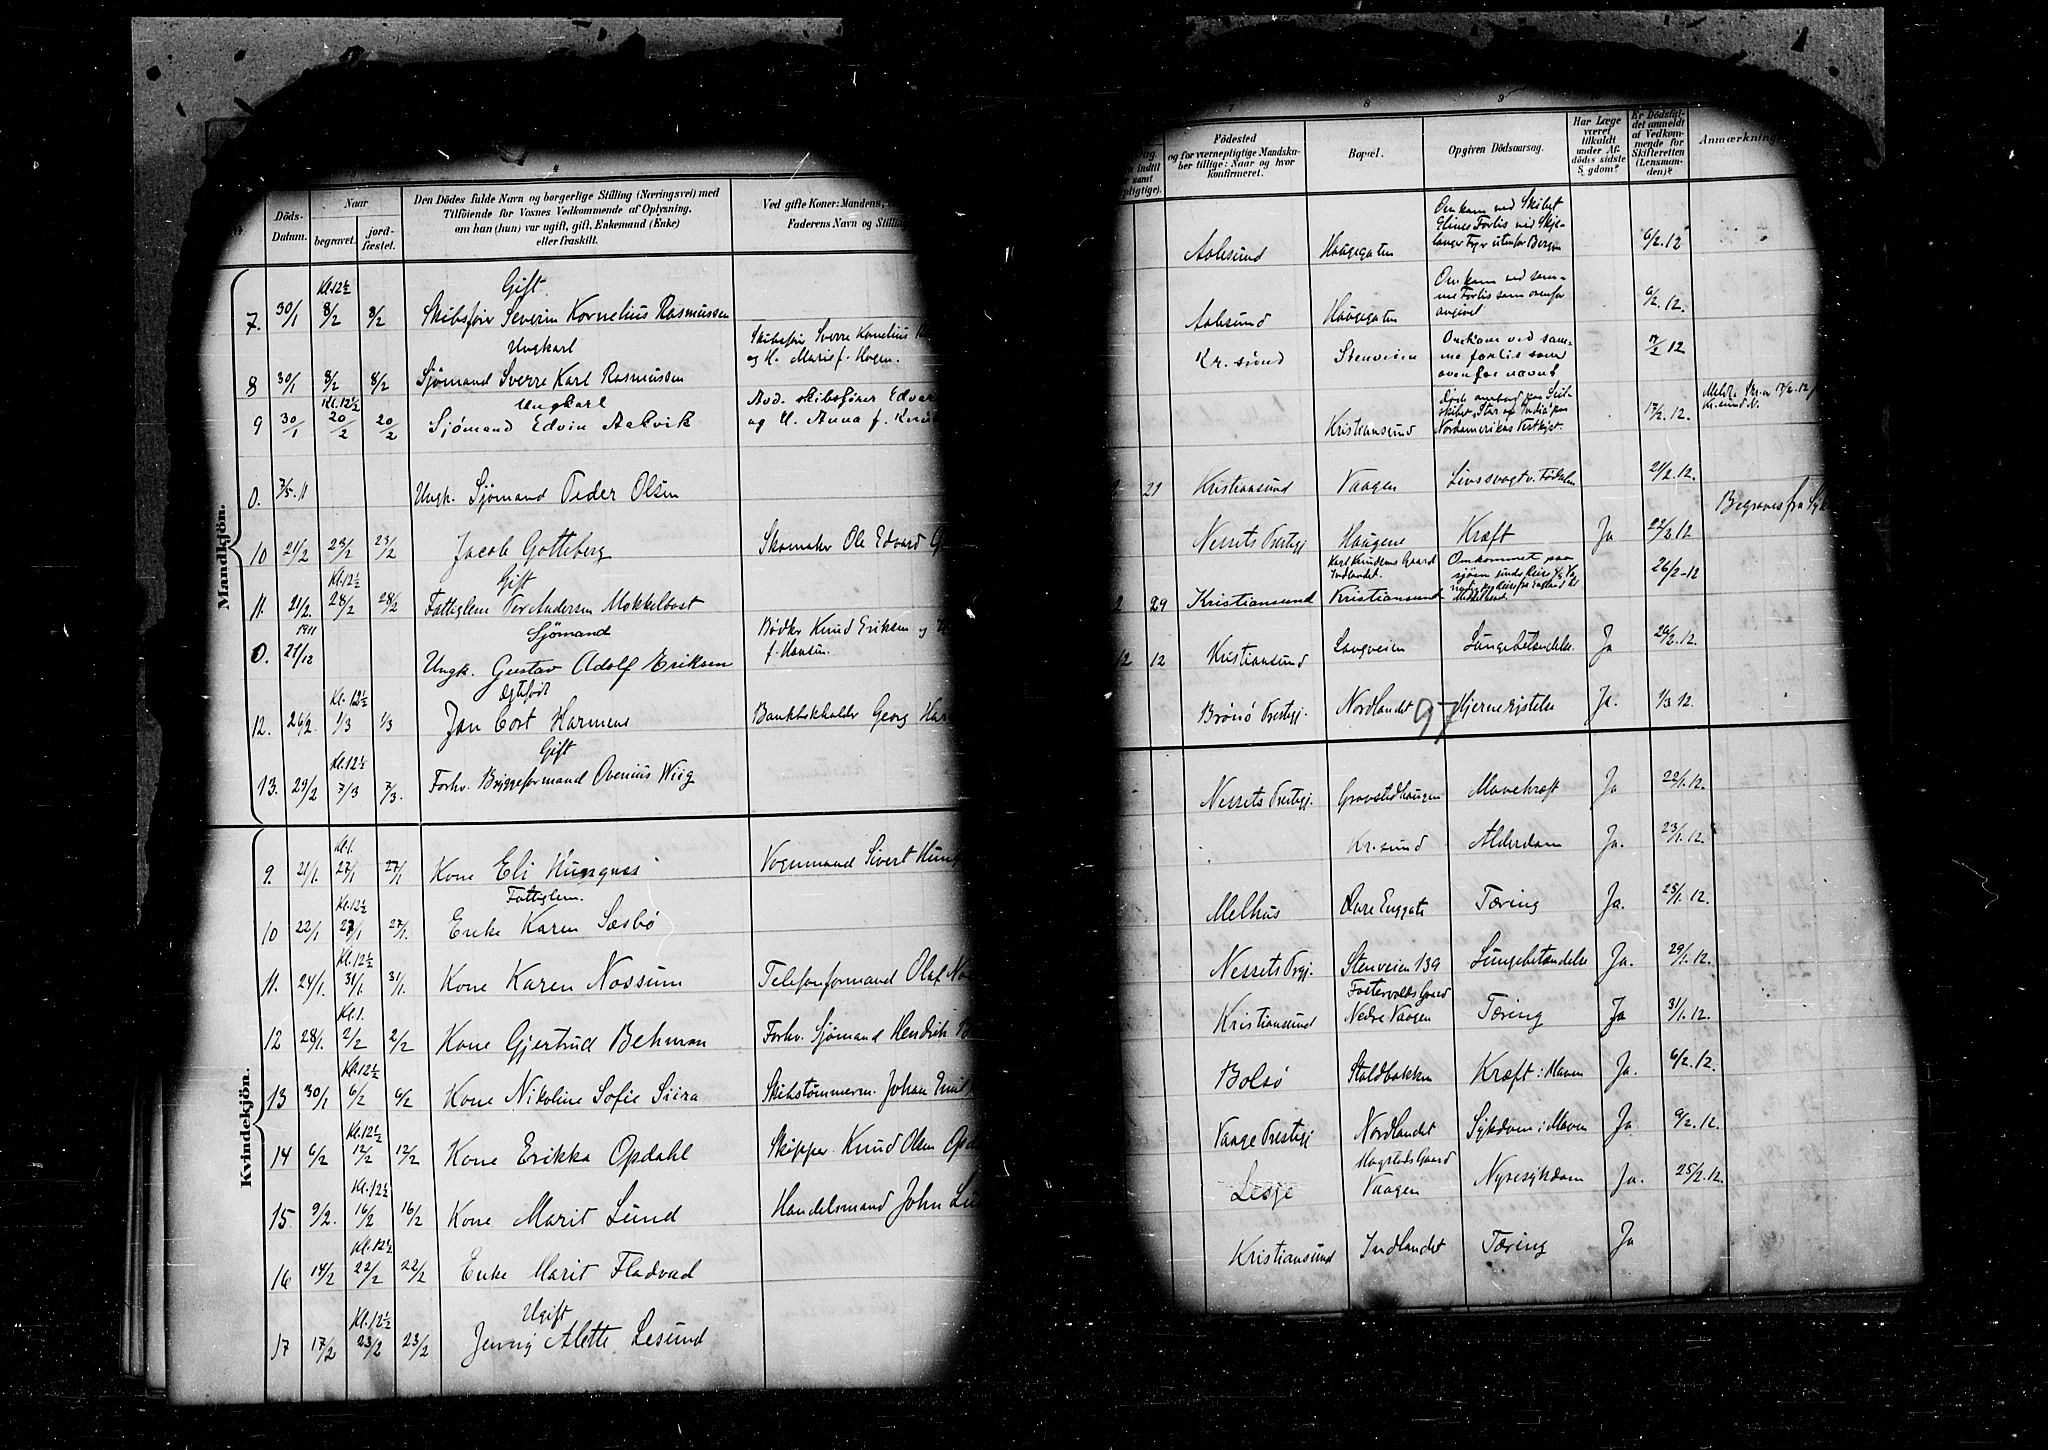 3
4
Döds-
Datum.
Naar
begravet.
jord-
fæstet.
Den Dödes fulde Navn og borgerlige Stilling (Næringsvei) med
Tilföiende for Voxnes Vedkommende af Oplysning,
om han (hun) var ugift, gift, Enkemand (Enke)
eller fraskilt.
Ved gifte Koner: Mandens,
Faderens Navn og Stilling
Mandkjön.
Kl. 12½ Gift
7. 30/1 8/2 8/2 Skibsfører Severin Kornelius Rasmussen
Ungkarl
Skibsfør Sverre Kornelius
og H. Marie f. Hogen.
8 30/1 8/2 8/2 Sjømand Sverre Karl Rasmussen
Kl. 12½ Ungkarl
9 30/1 20/2 20/2 Sjømand Edvin Aakvik
Avd. skibsfører Edvar
og H. Anna f.
0. 7/5. 11 Ungk. Sjømand Peder Olsen
10 21/2 23/2 23/2 Jacob Gotteberg
Skomaker Ole Edvard
Kl. 12½ Gift
11. 21/2. 28/2 28/2 Fattiglem Per Andersen Mokkelbost
1911 Sjømand
0. 21/12 Ungk. Gustav Adolf Eriksen
Bødker Knud Eriksen og
f. Hansen.
Kl. 12½ Ægtefødt
12. 26/2. 1/3 1/3 Jan Cort Harmens
Bankbokholder Georg Har
Kl. 12½ Gift
13. 29/2 7/3 7/3. Forhv. Byggeformand Ovenius Wiig
Kvindekjön.
Kl. 1.
9. 21/1. 27/1 27/1 Kone Eli Husgnes
Vognmand Sivert
Kl. 12½ Fattiglem.
10 22/1 27/1 27/1. Enke Karen Sæsbø
Kl. 12½
11. 24/1. 31/1. 31/1. Kone Karen Nossum
Telefonformand Olaf No
Kl. 1.
12 28/1. 2/2 2/2 Kone Gjertrud Behman
Forhv. Sjømand Hendrik B
Kl. 12½
13 30/1 6/2 6/2 Kone Nikoline Sofie Siira
Skibstømmerm. Johan Emil
Kl. 12½
14 6/2 12/2 12/2 Kone Erikka Opdahl
Skipper Knud Olsen Opd
Kl. 12½
15 9/2. 16/2 16/2 Kone Marit Lund
Handelsmand John Lu
Kl. 12½
16 14/2 22/2 22/2 Enke Marit Fladvad
Kl. 12½ Ugift
17 17/2 23/2 23/2 Jenny Alette Lesund
7
8
9
indtil
samt
pligtige).
Födested
og for værnepligtige Mandska-
ber tillige: Naar og hvor
konfirmeret.
Bopæl.
Opgiven Dödsaarsag.
Har Læge
været
tilkaldt
under Af-
dödes sidste
Sygdom?
Er Dödsfal-
det anmeldt
af Vedkom-
mende for
Skifteretten
(Lensman-
den)?
Anmærkning
Aalesund Haugegaten Omkom ved Skibet
Glimes Forlis ved Skjel-
anger Fyr utenfor Bergen 6/2. 12
Aalesund Haugegaten Omkom ved sam-
me Forlis som ovenfor
angivet 6/2. 12.
Kr. sund Stenveien Omkom ved sam-
me forlis som
ovenfor navnt 17/2 12
Kristiansund Døde ombord paa Seil-
skibet "Star of India" paa
Nordamerikas Vestkyst. 17/2. 12.
21 Kristiansund Vaagen Livssvagt v. Fødselen 21/2. 12.
Nessets Prestegj Haugene Kræft Ja 22/2 12 Begraves fra Syk
Karl Knudsens Gaard
Indlandet.
2 29 Kristiansund Kristiansund Omkommet paa
sjøen 26/2-12
12 12 Kristiansund Langveien Lungebetændelse Ja 29/2. 12.
Brønø Prestegj. Nordlandet Hjernerystelse Ja. 1/3 12.
97
Nessets Prestegj. Gravstedhaugen Mavekræft Ja 22/1. 12.
Kr. sund Alderdom Ja. 23/1. 12.
Melhus Øvre Enggate Tæring Ja. 25/1. 12.
Nessets Prgj. Stenveien 139 Lungebetændelse Ja. 29/1. 12.
Kristiansund Fostervolds Gaard
Nedre Vaagen Tæring Ja 31/1. 12.
Bolsø Staldbakken Kræft i Maven Ja. 6/2. 12.
Vaage Prestegj Nordlandet Sykdom i Maven Ja 9/2. 12.
Lesje Hagstads Gaard
Vaagen Nyresykdom Ja. 25/2. 12.
Kristiansund Indlandet Tæring Ja